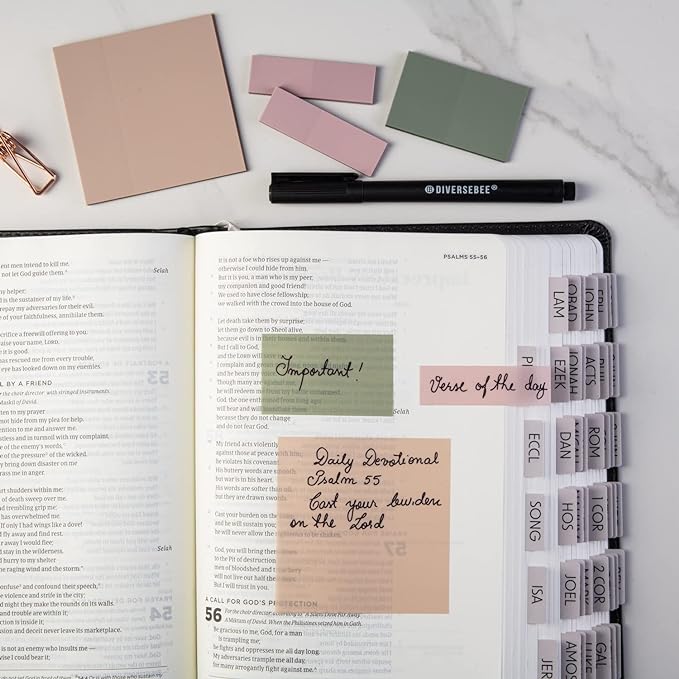 DIVERSEBEE®
ent men intend to kill me.
not let God guide them.
Selah
my helper;
d is the sustainer of my life.
repay my adversaries for their evil.
e of your faithfulness, annihilate them.
sacrifice a freewill offering to you.
praise your name, LORD,
it is good.
has rescued me from every trouble,
eye has looked down on my enemies.
L BY A FRIEND
the choir director: with stringed instruments.
Maskil of David.
ten to my prayer
not hide from my plea for help.
ention to me and answer me.
stless and in turmoil with my complaint,
e of the enemy's words,
e of the pressure of the wicked.
y bring down disaster on me
rass me in anger.
art shudders within me;
of death sweep over me.
d trembling grip me;
has overwhelmed me.
If only I had wings like a dove!
fly away and find rest.
ar away I would flee;
d stay in the wilderness.
Selah
hurry to my shelter
he raging wind and the storm."
confuse and confound their speech,
violence and strife in the city;
nd night they make the rounds on its walls.
nd trouble are within it;
ction is inside it;
sion and deceit never leave its marketplace.
ot an enemy who insults me —
I could bear it;
PSALMS 55–56
it is not a foe who rises up against me —
otherwise I could hide from him.
But it is you, a man who is my peer,
my companion and good friend!
We used to have close fellowship;
we walked with the crowd into the house of God.
Let death take them by surprise;
let them go down to Sheol alive,
because evil is in their homes and within them.
But I call to God,
and the LORD will save me.
I complain and groan
and he hears my voice.
Though many are against me,
he will redeem me
God, the one enthroned from long ago,
will hear and will
because they do not change
and do not fear God.
Selah
Important!
Verse of the day
My friend acts violently
against those at peace with him;
he violates his covenant.
His buttery words are smooth,
but war is in his heart.
His words are softer than oil,
but they are drawn swords.
Cast your burden on the LORD,
and he will sustain you;
he will never allow the righteous to be shaken.
God, you will bring them down
to the Pit of destruction;
men of bloodshed and treachery
will not live out half their days.
But I will trust in you.
Daily Devotional
Psalm 55
Cast your burdern
on the Lord
A CALL FOR GOD'S PROTECTION
56 For the choir director: according to "A Silent Dove Far Away."
A Miktam of David. When the Philistines seized him in Gath.
Be gracious to me, God, for a man
is trampling me;
he fights and oppresses me all day long.
My adversaries trample me all day,
for many arrogantly fight against me.
LAM
OBAD
JOHN
EZEK
JONAH
ACTS
ECCL
DAN
ROM
SONG
HOS
1 COR
ISA
JOEL
2 COR
JER
AMOS
GAL